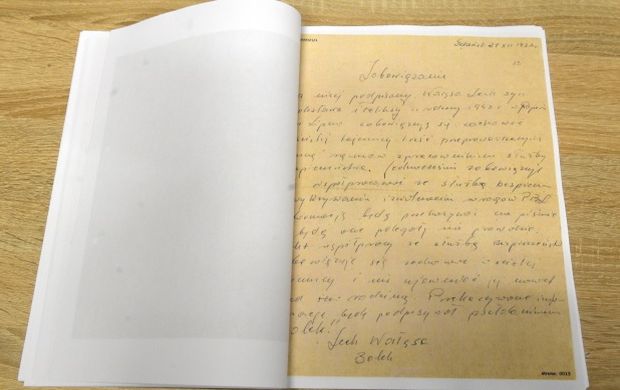 Gdańsk 21 XII 1970r.
Zobowiązanie
niżej podpisany Wałęsa Lech syn
i Feliksy urodzony 1943 r. w Popo
Lipno zobowiązuję się zachować
tajemnicy treść przeprowadzonych
rozmów z pracownikami służby
Jednocześnie zobowiązuję
współpracować ze służbą bezpiec
wykrywaniu i zwalczaniu wrogów PRL
będę przekazywał na piśmie
będą one polegały na prawdzie.
współpracy ze służbą bezpieczeńst
się zachować w ścisłej
i nie ujawniać jej nawet
rodziną. Przekazywane infor
będę podpisywał pseudonimem
olek"
Lech Wałęsa
Bolek
Strona: 0013